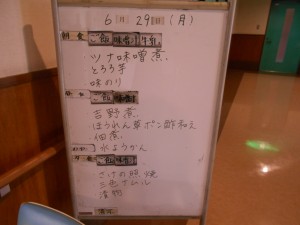 6月29日(月)
朝食 ご飯 味噌汁 牛乳
ツナ味噌煮
とろろ芋
味のり
昼食 ご飯 味噌汁
吉野煮
ほうれん草ポン酢和え
佃煮
水ようかん
夕食 ご飯 味噌汁
さけの照焼
三色
漬物